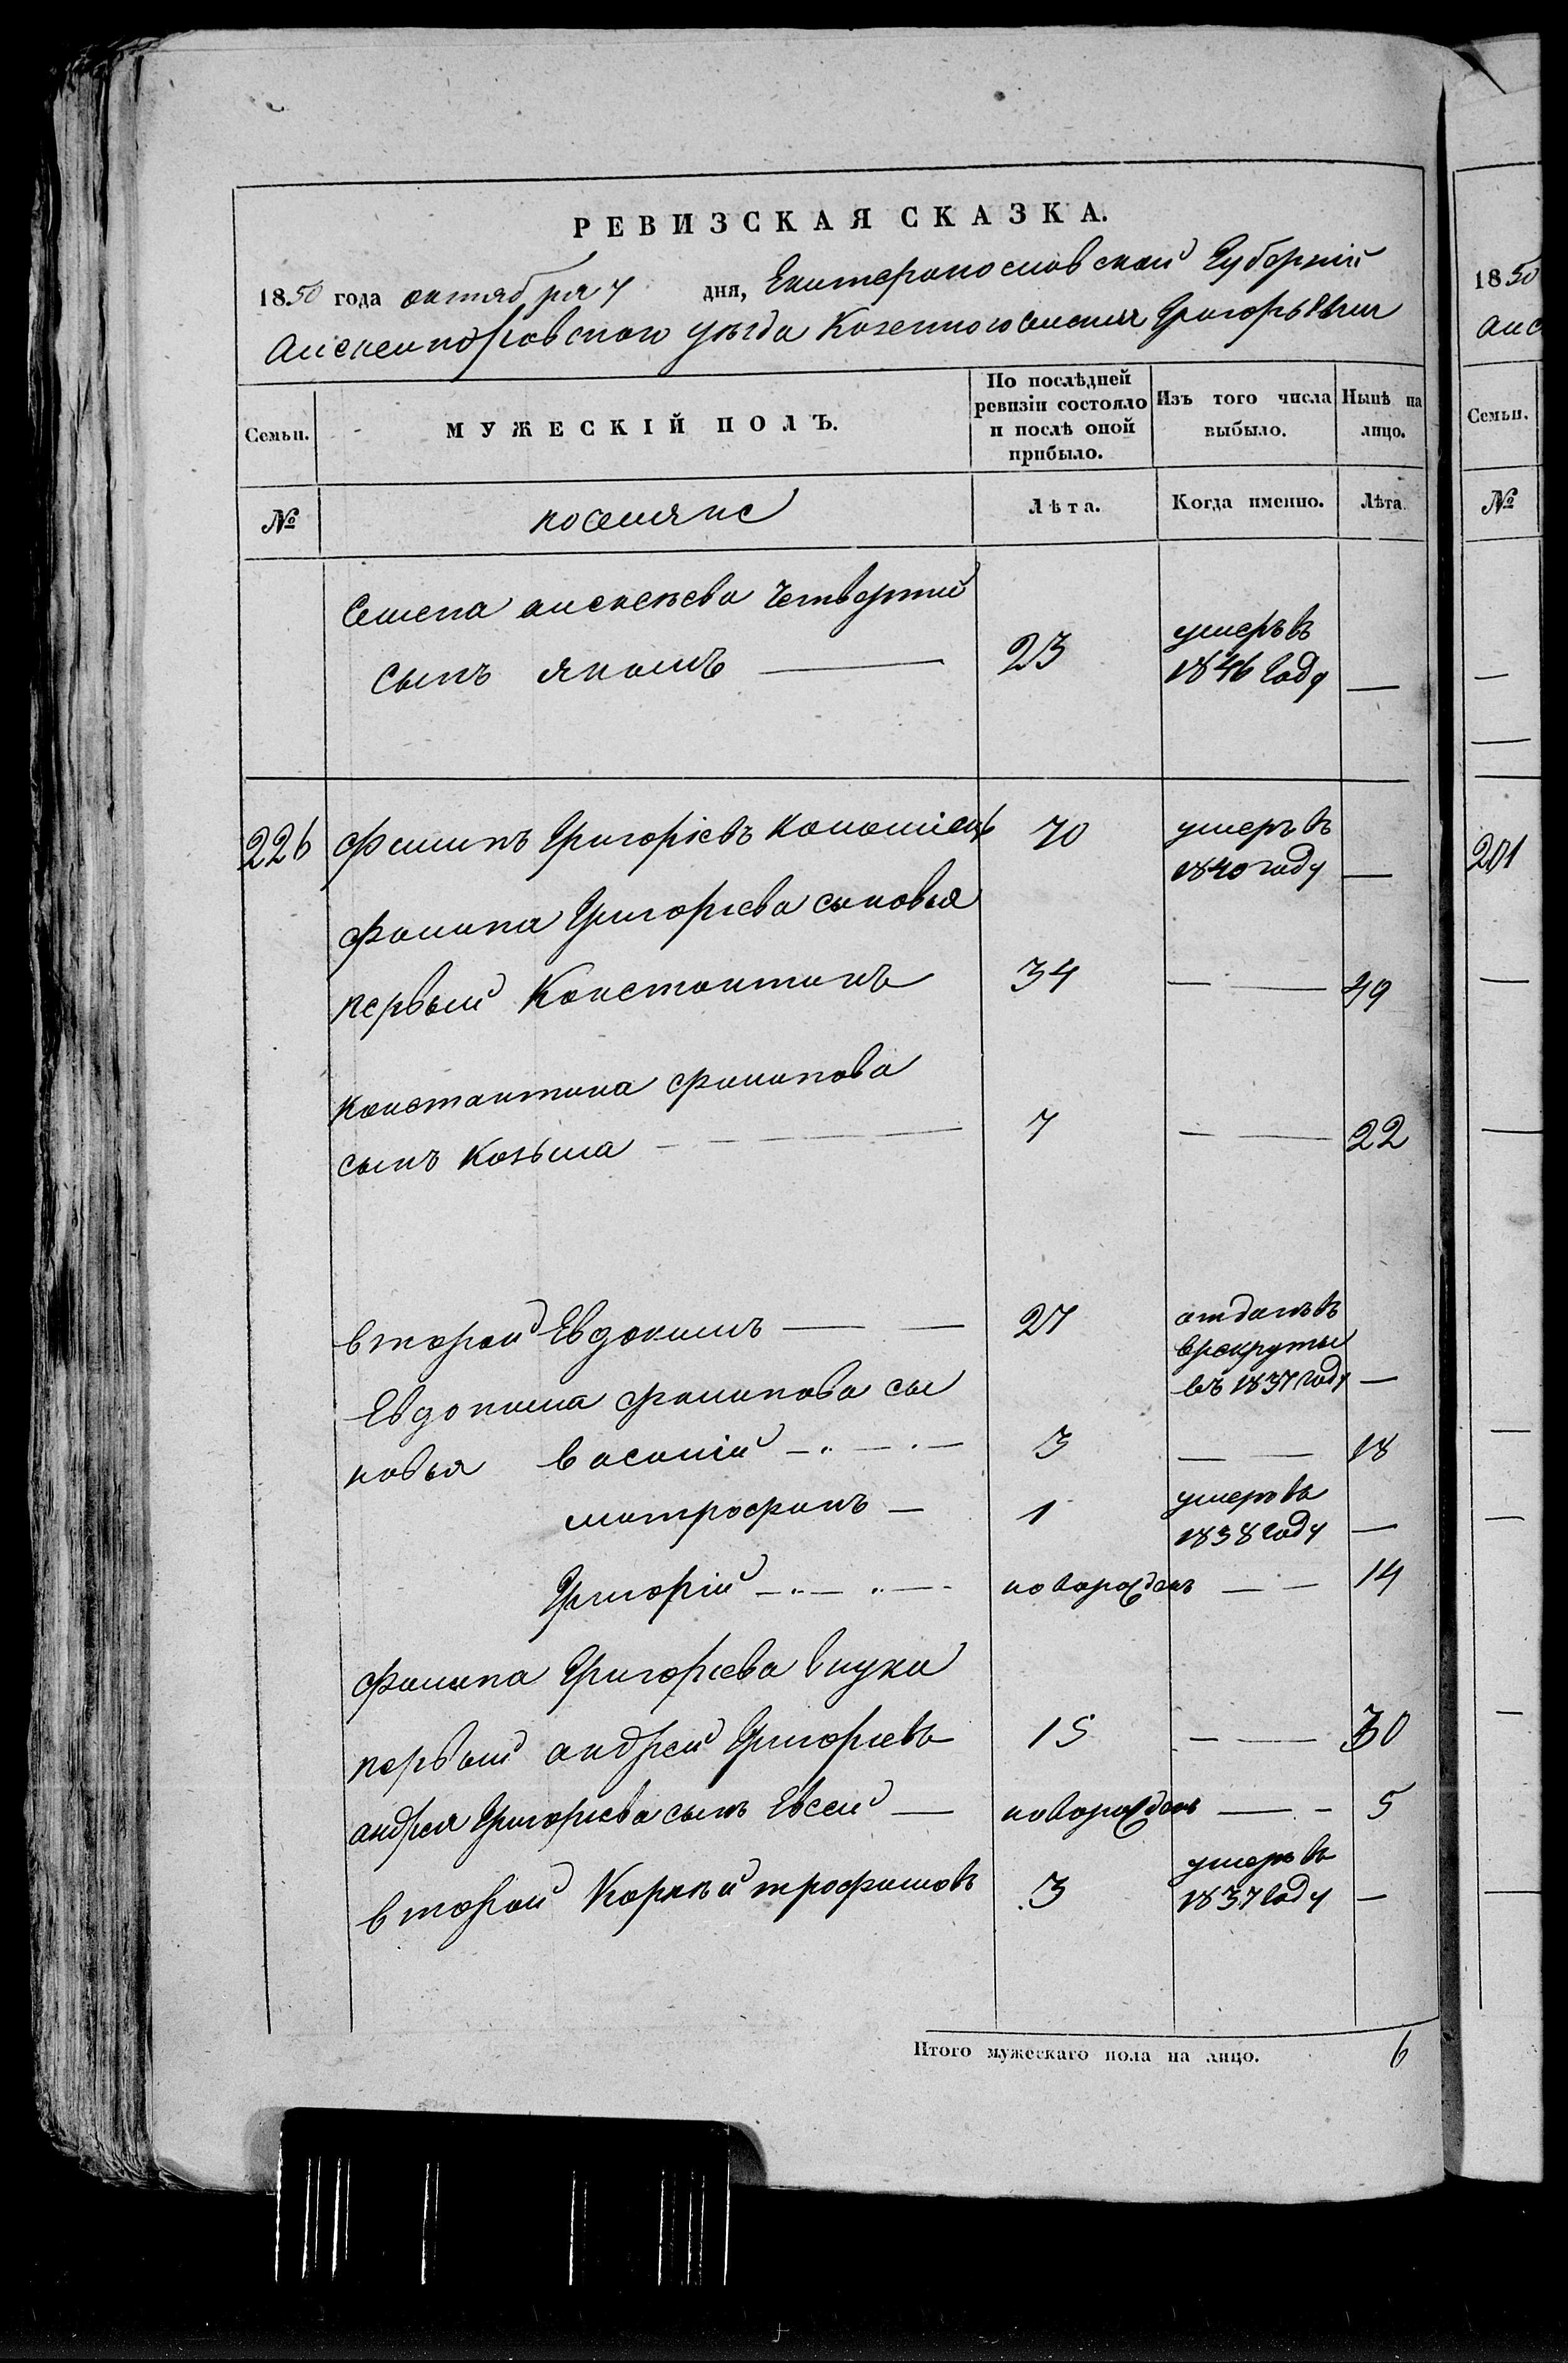 РЕВИЗСКАЯ СКАЗКА.
1850 года октября 7 дня, Екатеринославской Губерніи
Александровского уезда Казенного селения Григорьевки
Семьи. МУЖЕСКІЙ ПОЛЪ. По послѣдней ревизіи состояло и послѣ оной прибыло. Изъ того числа выбыло. Нынѣ на лицо.
№ поселяне Лѣта. Когда именно. Лѣта.
Семена алексеева четвертый
сынъ якимъ 23 умеръ въ 1846 году —
226 Филипъ Григоріевъ Коломіецъ 70 умеръ въ 1840 году —
Филипа Григориева сыновья
первый Константинъ 34 — — 49
Константина филипова
сынъ Козьма 7 — — 22
второй Евдокимъ — — 27 отданъ въ врекруты въ 1837 году —
Евдокима филипова сы
новья василій 3 — — 18
митрофанъ — 1 умеръ въ 1838 году —
Григорій новорожденъ — — 14
Филипа Григориева внуки
первый андрей Григориевъ 15 — — 30
андрея Григориева сынъ Евсей — новорожденъ — - 5
второй Корней трофимовъ 3 умеръ въ 1837 году —
Итого мужескаго пола на лицо. 6
1850
Семьи.
№
201